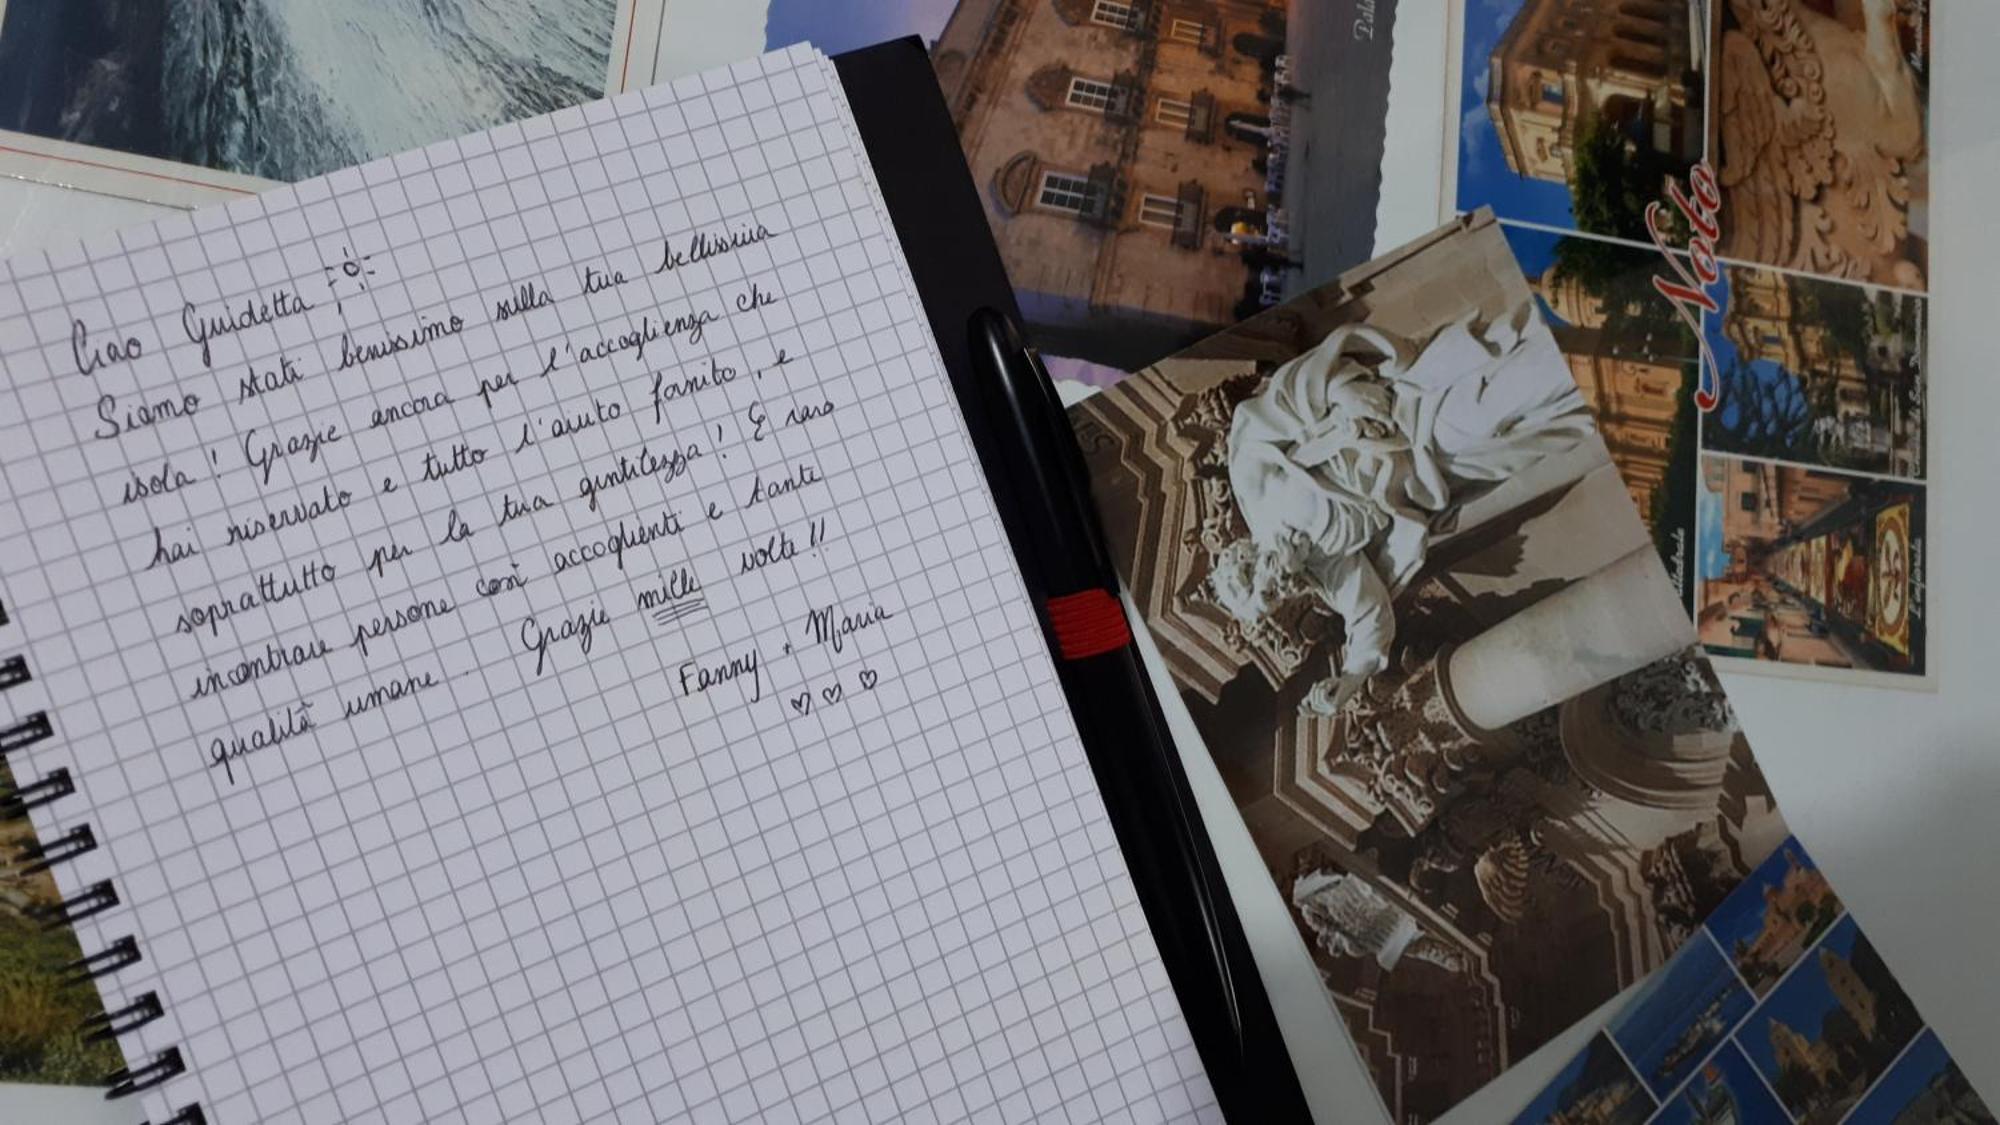 Ciao Guidetta
Siamo stati benissimo sulla tua bellissima
isola ! Grazie ancora per l'accoglienza che
hai riservato e tutto l'aiuto fornito , e
soprattutto per la tua gentilezza ! È raro
incontrare persone così accoglienti e tante
qualità umane . Grazie mille volte !!
Fanny + Maria
Noto